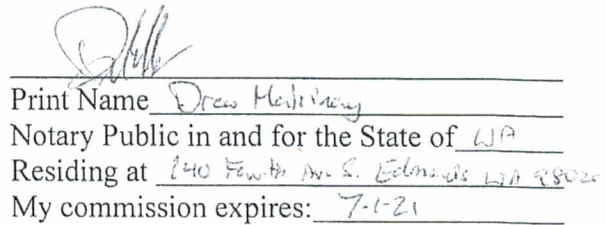 Print Name Drew
Notary Public in and for the State of WA
Residing at 240 Fourth Av. S. Edmonds WA 98020
My commission expires: 7-1-21